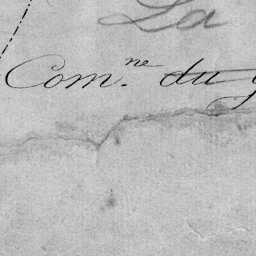 La
Com.ne du